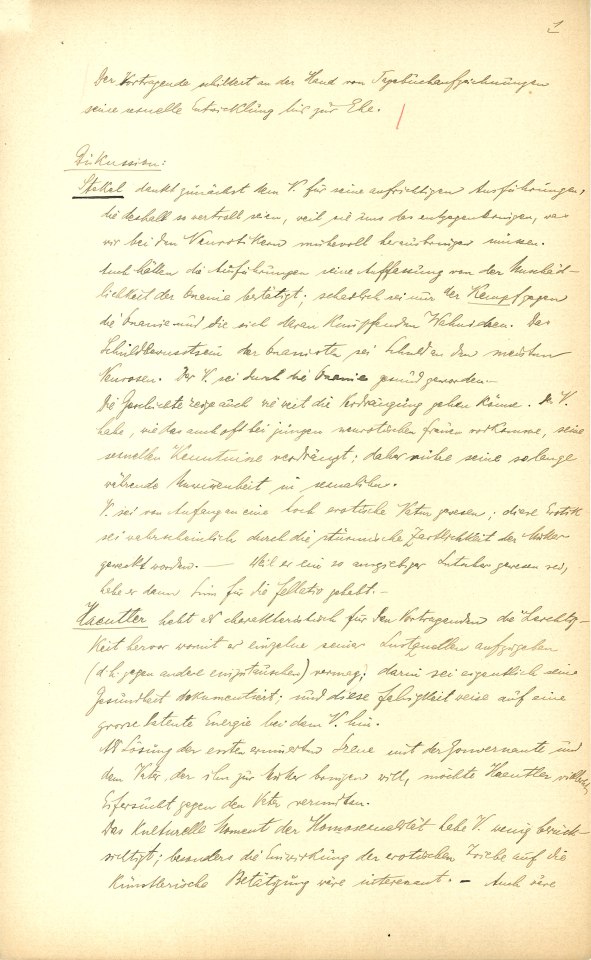 1
Der Vortragende schildert an der Hand von Tagebuchaufzeichnungen
seine sexuelle Entwicklung bis zur Ehe.
Diskussion:
Stekel dankt zunächst dem V. für seine aufrichtigen Ausführungen,
die deshalb so wertvoll seien, weil sie uns das entgegenbringen, was
wir bei den Neurotikern mühevoll herausbringen müssen.
Auch hätten die Ausführungen seine Auffassung von der Unschäd-
lichkeit der Onanie bestätigt; schädlich sei nur der Kampf gegen
die Onanie und die sich daran knüpfenden Wahnideen. Das
Schuldbewusstsein der Onanisten sei Schuld an den meisten
Neurosen. Der V. sei durch die Onanie gesund geworden.—
Die Geschichte zeige auch wie weit die Verdrängung gehen könne. Der V.
habe, wie das auch oft bei jungen neurotischen Frauen vorkomme, seine
sexuellen Kenntnisse verdrängt; daher rühre seine so lange
währende Unwissenheit in sexualibus.
V. sei von Anfang an eine hoch erotische Natur gewesen; diese Erotik
sei wahrscheinlich durch die stürmische Zärtlichkeit der Mutter
geweckt worden. — Weil er ein so ausgiebiger Lutscher gewesen sei,
habe er dann Sinn für die fellatio gehabt.—
Haeutler hebt als charakteristisch für den Vortragenden die Leichtig-
keit hervor womit er einzelne seiner Lustquellen aufzugeben
(d.h. gegen andere einzutauschen) vermag; darin sei eigentlich seine
Gesundheit dokumentiert; und diese Fähigkeit weise auf eine
grosse latente Energie bei dem V. hin.
Als Lösung der ersten erinnerten Szene mit der Gouvernante und
dem Vater, der ihn zur Mutter bringen will, möchte Haeutler vielleicht
Eifersucht gegen den Vater vermuten.
Das kulturelle Moment der Homosexualität habe V. wenig berück-
sichtigt; besonders die Einwirkung der erotischen Triebe auf die
künstlerische Betätigung wäre interessant. — Auch wäre